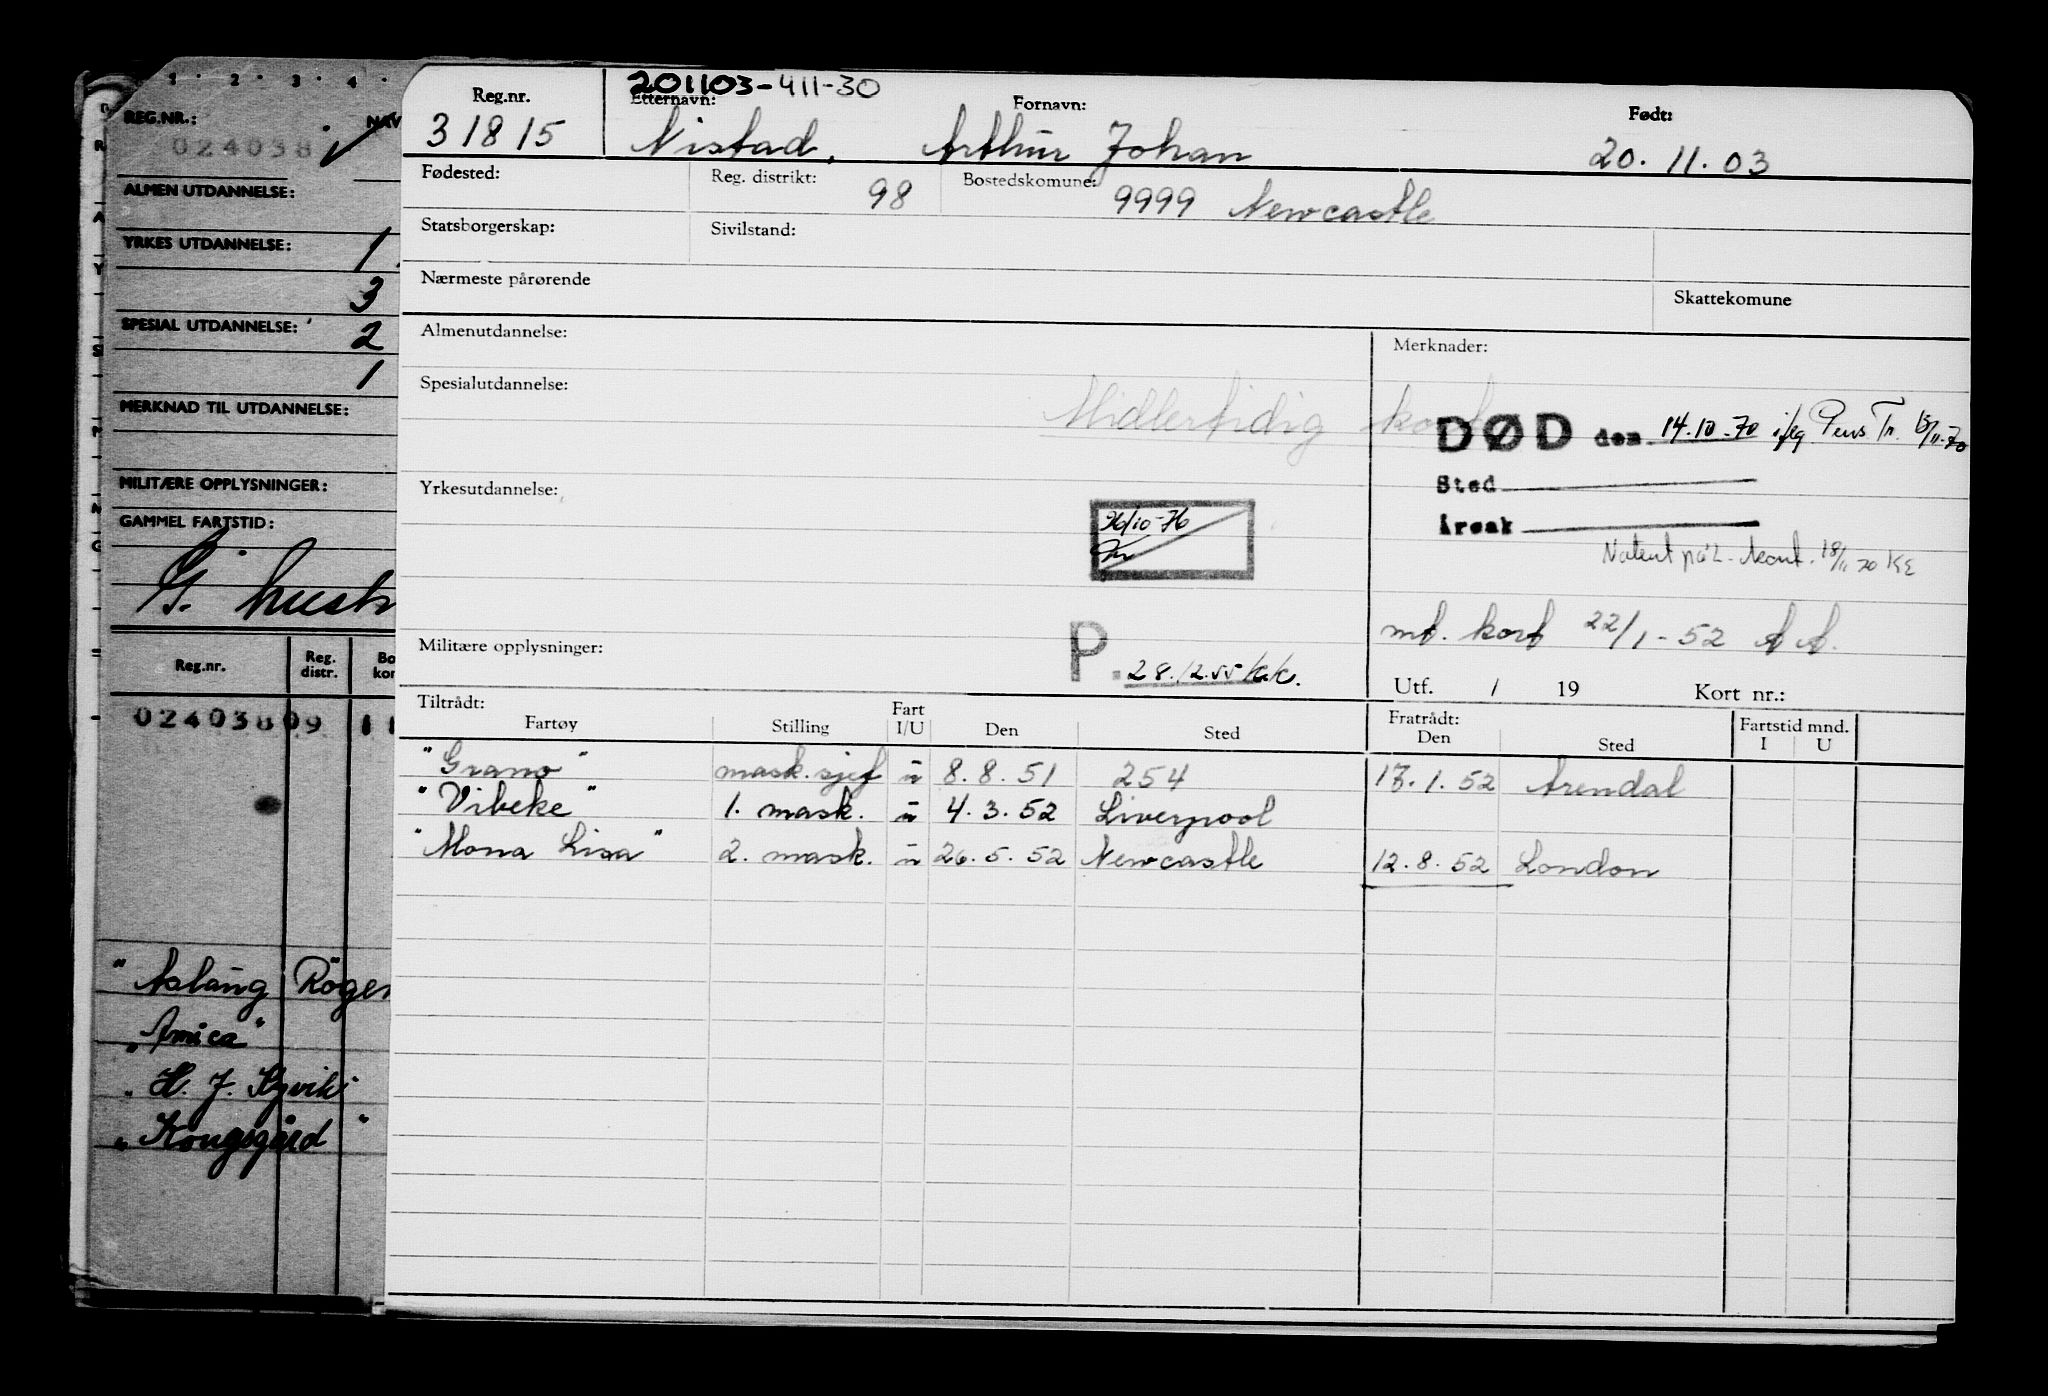 1 . 2 . 3 . 4 .
REG.NR.:
NAV
024038
ALMEN UTDANNELSE:
YRKES UTDANNELSE: 1
3
SPESIAL UTDANNELSE: 2
1
MERKNAD TIL UTDANNELSE:
MILITÆRE OPPLYSNINGER:
GAMMEL FARTSTID:
Reg.nr. Reg. distr. Bo kor
02403809 11
"Aslaug Röger
"Amica"
"Kongsgård"
201103-411-30
Reg.nr. Etternavn: Fornavn: Født:
31815 Nistad, Arthur Johan 20.11.03
Fødested: Reg. distrikt: 98 Bostedskomune: 9999 Newcastle
Statsborgerskap: Sivilstand:
Nærmeste pårørende Skattekomune
Almenutdannelse: Merknader:
Spesialutdannelse: Midlertidig kort
DØD den 14.10.70 iflg Pens Tr. 13/11-70
Sted
Årsak
Yrkesutdannelse:
26/10-76
Notert på L-kont. 18/11 70 KE
mt. kort 22/1-52 A A.
Militære opplysninger: P. 28.12.55 kk.
Utf. / 19 Kort nr.:
Tiltrådt: Fratrådt: Fartstid mnd.
Fartøy Stilling Fart I/U Den Sted Den Sted I U
"Grano" mask.sjef u 8.8.51 254 17.1.52 Arendal
"Vibeke" 1. mask. u 4.3.52 Liverpool
"Mona Lisa" 2. mask. u 26.5.52 Newcastle 12.8.52 London